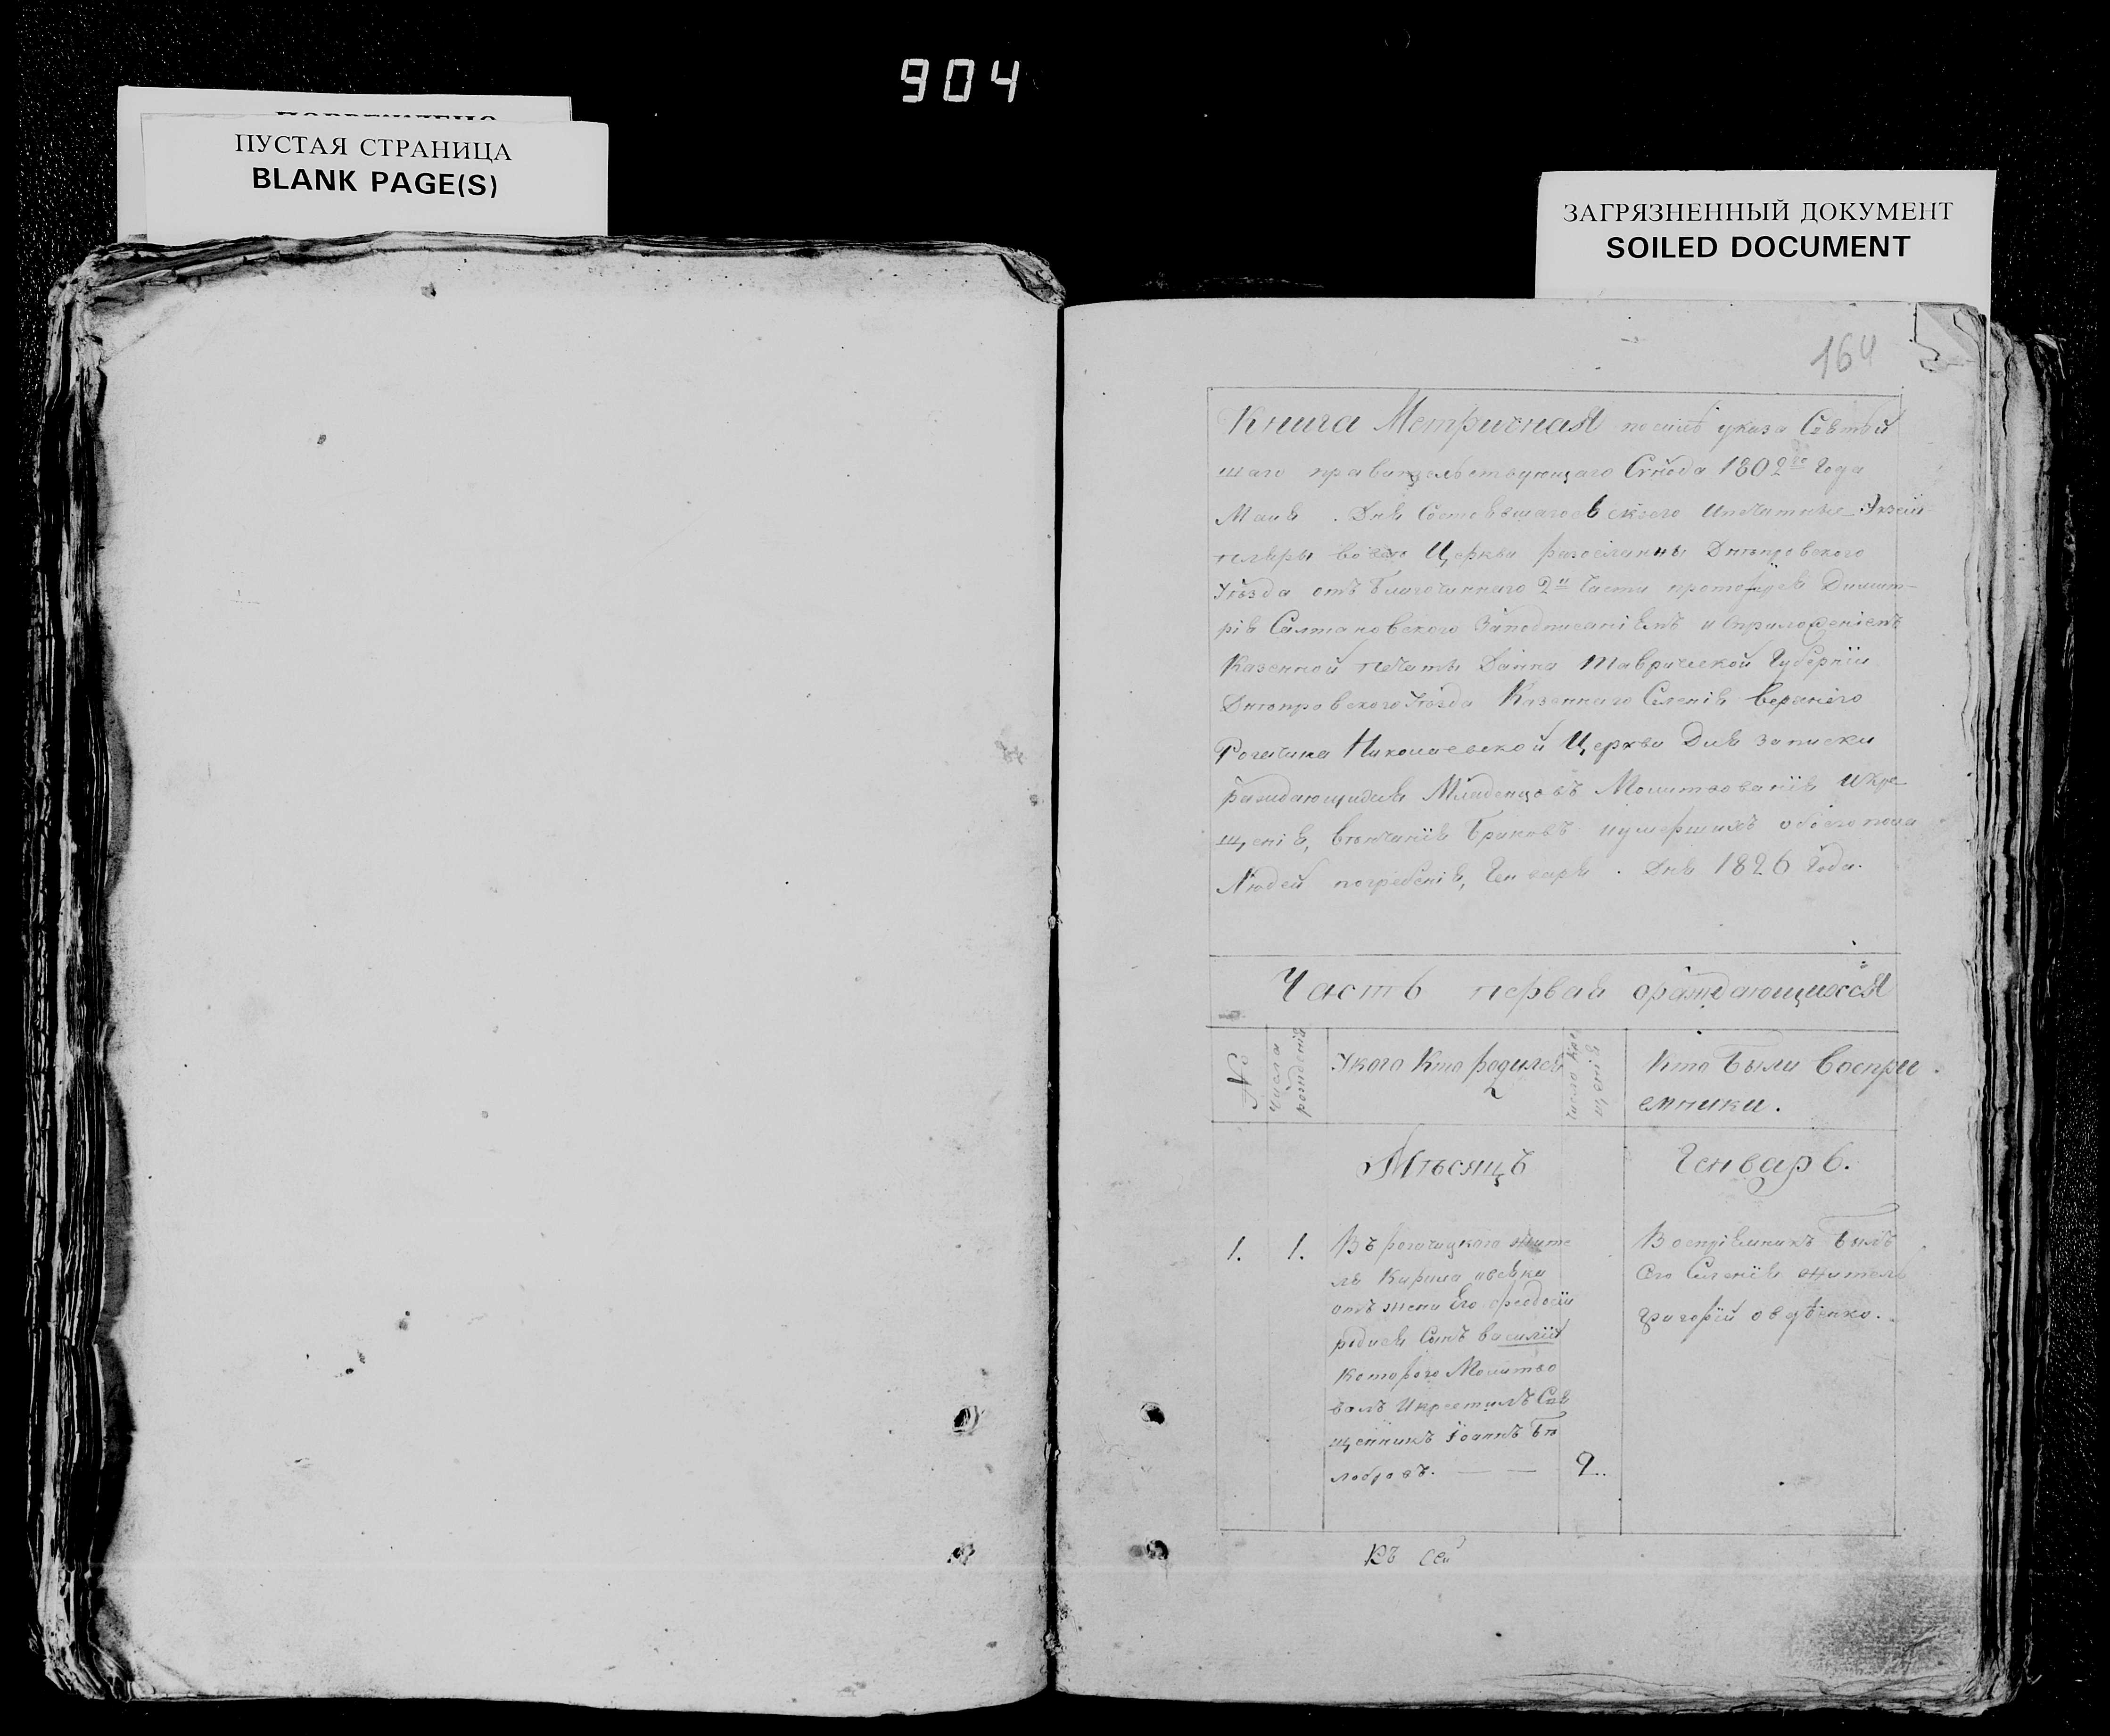 904
ПУСТАЯ СТРАНИЦА
BLANK PAGE(S)
ЗАГРЯЗНЕННЫЙ ДОКУМЕНТ
SOILED DOCUMENT
164
Книга Метричная посилѣ указа Святѣй
шаго правительствующаго Сѵнода 1802го Года
Маия . Дня
Церкви разосланны Днѣпровского
Уѣзда отъ Благочинного 2й Части протоіерея Димит-
рія Салтановского Заподписаніемъ иприложеніемъ
Казенной печати Данна Таврической Губерніи
Днѣпровского Уѣзда Казенного Селенія верхнего
Рогачика Николаевской Церкви Для записки
раждающихся Младенцовъ Молитвованія Икре
щенія, вѣнчанія Браковъ иумершихъ обоего пола
Людей погребенія, Генваря . Дня 1826 Года.
Часть первая ораждающихся
№
Числа рожденія
Укого кто родился
Число кре щенія
Кто были воспри
емники.
Мѣсяцъ
Генварь.
1.
1.
Въ рогачицкого жите
ля Кирила
отъ жени Его феодосіи
родися Синъ василій
которого Молитво
валъ Икрестилъ Свя
щенникъ Іоаннъ Бѣ
лобровъ. — —
9..
Воспріемникъ былъ
Сего Селенія житель
григорій
Въ сей